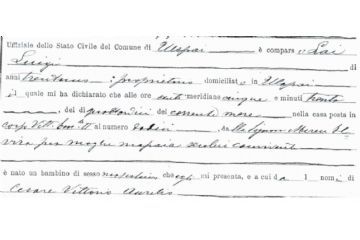 Uffiziale dello Stato Civile del Comune di Ulassai è comparso Lai
Luigi di
anni trentuno proprietario domiciliato in Ulassai
il quale mi ha dichiarato che alle ore anti meridiane cinque e minuti trenta
del dì quattordici del corrente mese nella casa posta in
corso Vitt. Em. II al numero dodici da
sua moglie seco lui convivente
è nato un bambino di sesso mascolino che egli mi presenta, e a cui dà i nomi di
Cesare Vittorio Aurelio